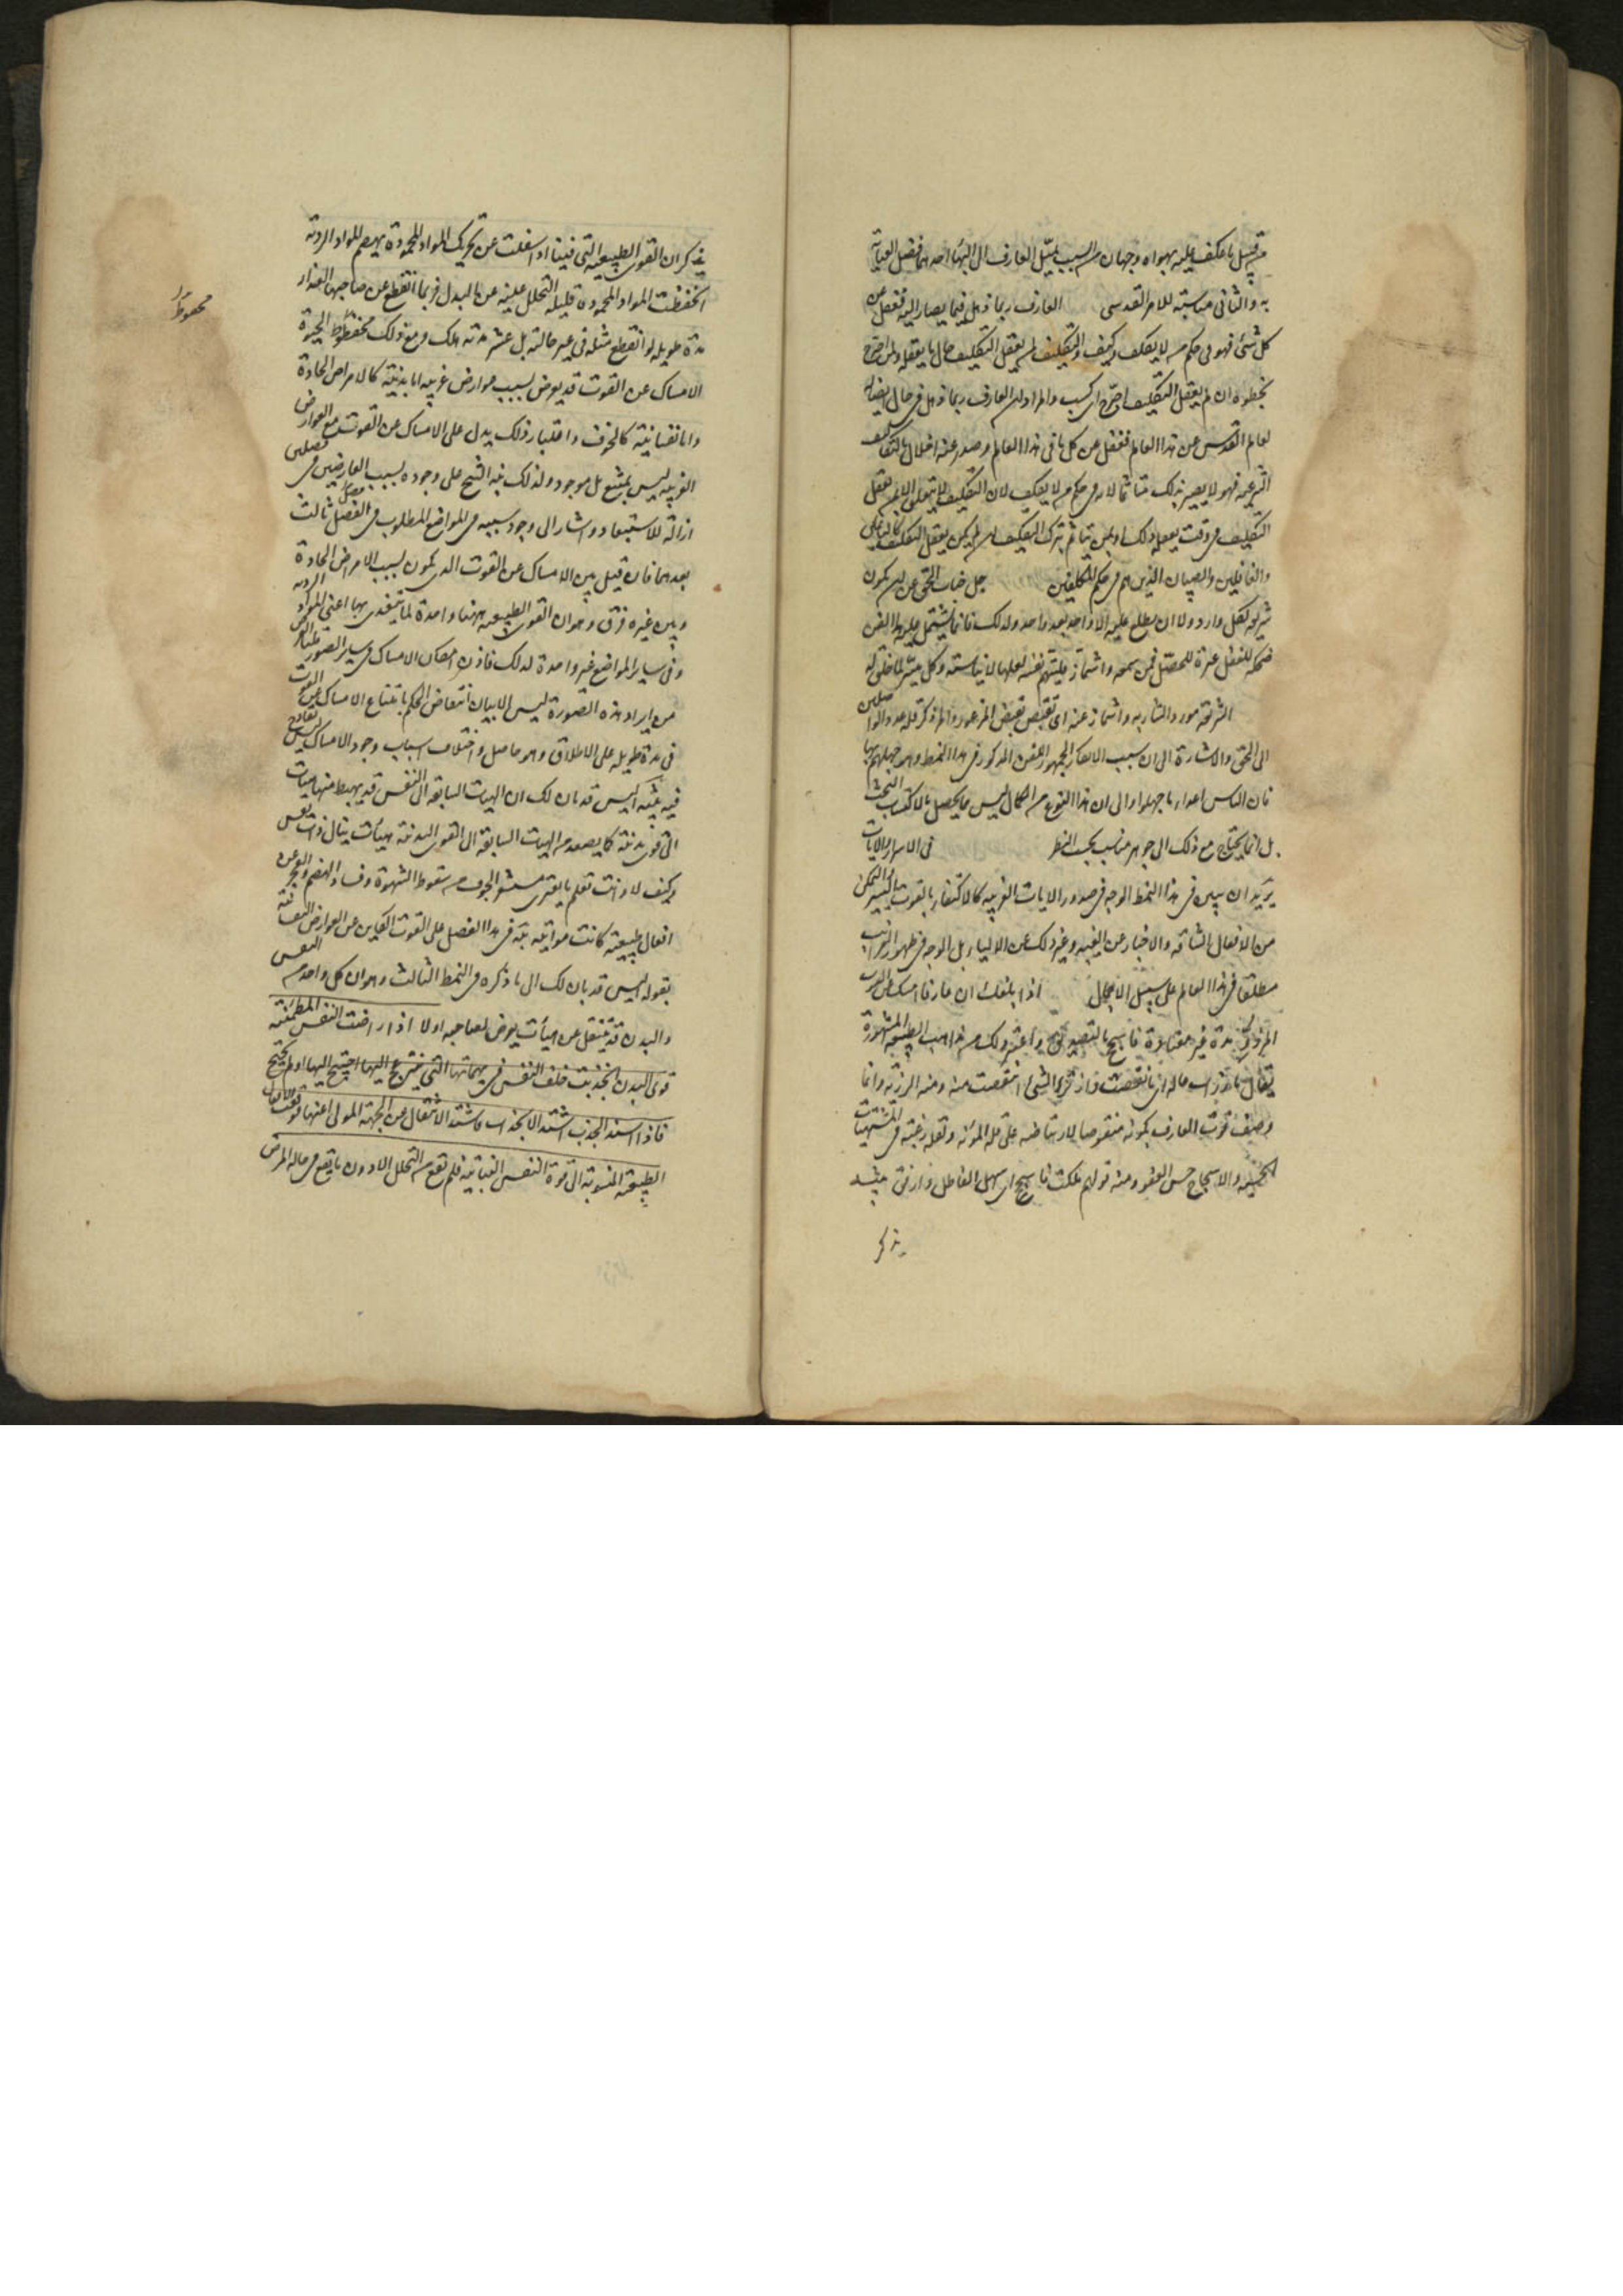 من قبيل ما عكف عليه بهواه وجهان من السبب لميل العارف الى البهاء احدهما فضل العناية
به والثانى مناسبته للامر القدسى العارف ربما ذهل فيما يصار اليه فغفل عن
كل شئ فهو فى حكم من لا يكلف وكيف والتكليف لمن يعقل التكليف حال ما يعقله ولمن اجترح
بخطيئته ان لم يعقل التكليف اجترح اى كسب والمراد ان العارف ربما ذهل فى حال اتصاله
لعالم القدس عن هذا العالم فغفل عن كل ما فى هذا العالم وصدر عنه اخلال بالتكاليف
الشرعية فهو لا يصير بذلك متاثما لانه فى حكم من لا يكلف لان التكليف لا يتعلق الا بمن يعقل
التكليف فى وقت يعقله ذلك او بمن يتاثم بترك التكليف ان لم يكن يعقل التكليف كالنائمين
والغافلين والصبيان الذين هم فى حكم المكلفين جل جناب الحق عن ان يكون
شريعة لكل وارد او ان يطلع عليه الا واحد بعد واحد ولذلك فان ما يشتمل عليه هذا الفن
ضحكة للمغفل عبرة للمحصل فمن سمعه واشمأز عنه فليتهم نفسه لعلها لا يناسبه وكل ميسر لما خلق له
الشريعة مورد الشاربه واشمأز عنه اى تقبض تقبض المذعور والمراد ذكر قلة عدد الواصلين
الى الحق والاشارة الى ان سبب الانكار الجمهور للفن المذكور فى هذا النمط وهو جهلهم بها
فان الناس اعداء ما جهلوا والى ان هذا النوع من الكمال ليس مما يحصل بالاكتساب البحت
بل انما يحتاج مع ذلك الى جوهر مناسب بحسب الفطر فى الاسرار والايات
يريد ان يبين فى هذا النمط الوجه فى صدور الايات الغريبة كالاكتفاء بالقوت اليسير والتمكن
من الافعال الشاقة والاخبار عن الغيب وغير ذلك عن الاولياء بل الوجه فى ظهور الغرايب
مطلقا فى هذا العالم على سبيل الاجمال اذا بلغك ان عارفا امسك عن القوت
المرزوء له مدة غير معتادة فاسجح بالتصديق واعتبر ذلك من مذاهب الطبيعة المشهورة
يقال ما رزات ماله اى ما نقصت وارتزء الشئ انتقصت منه ومنه الرزية وانما
وصف قوت العارف بكونه منقوصا لارتياضه على قلة المؤنة وتقلة رغبته فى المشتهيات
الحسية والاسجاح حسن العفو ومنه قولهم ملكت فاسجح اى سهل الفاظك وارفق
يذكر
يذكر ان القوى الطبيعية التى فينا اذا شغلت عن تحريك المواد المحمودة بهضم المواد الردية
انحفظت المواد المحمودة قليلة التحلل غنية عن البدل فربما انقطع عن صاحبها الغذاء
مدة طويلة لو انقطع مثله فى غير حالته بل عشر مدته هلك وهو مع ذلك محفوظ الحيوة
محفوظ
الامساك عن القوت قد يعرض بسبب عوارض غريبة اما بدنية كالامراض الحادة
واما نفسانية كالخوف واعتبار ذلك يدل على الامساك عن القوت مع العوارض
الغريبة ليس بممتنع بل موجود ولذلك نبه الشيخ على وجوده بسبب العارضين فى فصلين
ازالة للاستبعاد واشار الى وجود سببه فى المواضع المطلوب فى الفصل ثالث
بعدهما فان قيل بين الامساك عن القوت الذى يكون بسبب الامراض الحادة
وبين غيره فرق وهو ان القوى الطبيعية ههنا واحدة لما تتغذى بها اعنى المواد الردية
وفى ساير المواضع غير واحدة لذلك فاذن امكان الامساك فى ساير الصور
من ايراد هذه الصورة ليس الا بيان انتقاض الحكم بامتناع الامساك عن القوت
فى مدة طويلة على الاطلاق وهو حاصل واختلاف اسباب وجود الامساك ليس بقادح
فيه تنبيه اليس قد بان لك ان الهيات السابقة الى النفس قد يهبط منها هيات
الى قوى بدنية كما يصعد من الهيات السابقة الى القوى البدنية هيئات ينال ذات النفس
وكيف لا وانت تعلم ما يعترى مستشعر الخوف من سقوط الشهوة وفساد الهضم والعجز عن
افعال طبيعية كانت مواتية نبه فى هذا الفصل على القوت الكاين عن العوارض النفسانية
بقوله اليس قد بان لك الى ما ذكره فى النمط الثالث وهو ان كل واحد من النفس
والبدن قد ينفعل عن هيئات يعرض لصاحبه اولا اذا راضت النفس المطمئنة
قوى البدن انجذبت خلف النفس فى مهماتها التى تنزعج اليها احتيج اليها او لم يحتج
فاذا اشتد الجذب اشتد الانجذاب فاشتد الاشتغال عن الجهة المولى عنها فوقفت الافعال
الطبيعية المنسوبة الى قوة النفس النباتية فلم يقع من التحلل الا دون ما يقع فى حالة المرض